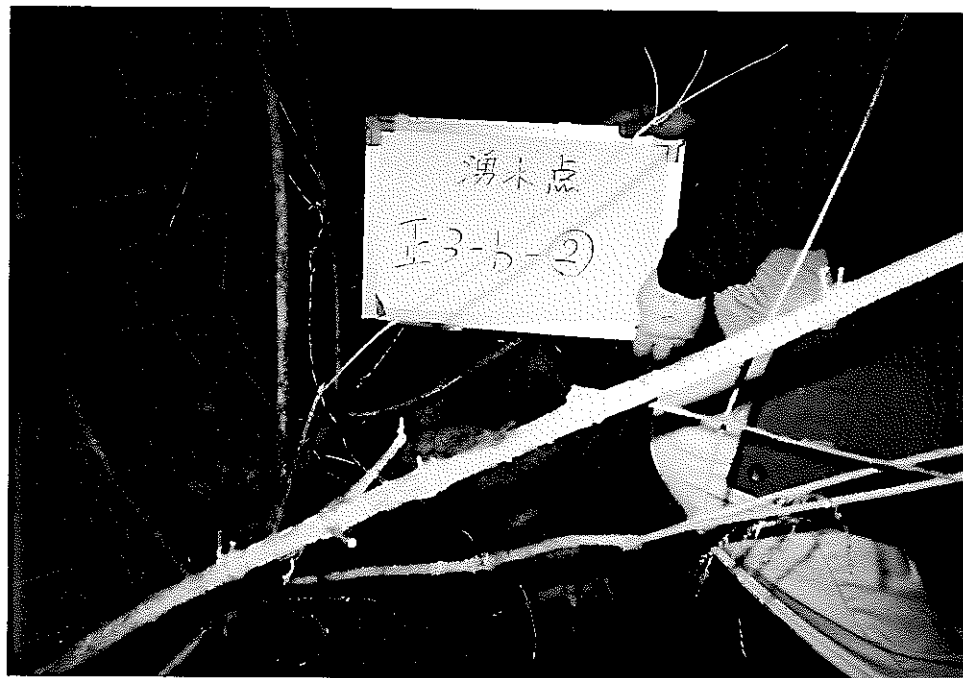 湧水点
正3-b-②